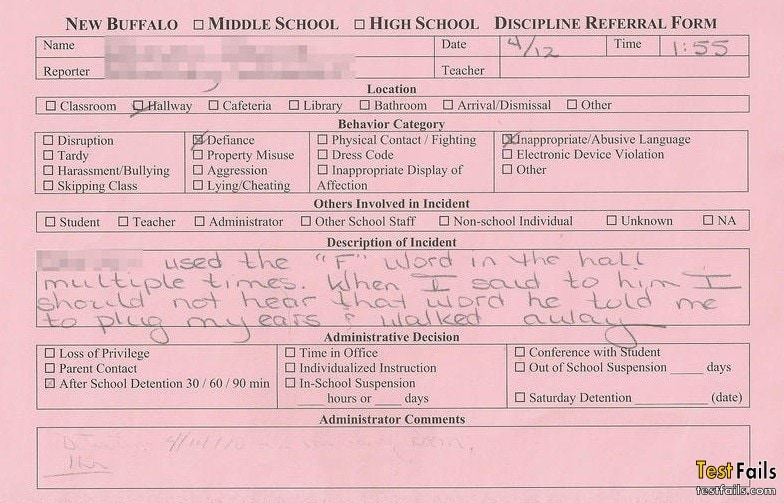 NEW BUFFALO ☐ MIDDLE SCHOOL ☐ HIGH SCHOOL DISCIPLINE REFERRAL FORM
Name Date 4/12 Time 1:55
Reporter Teacher
Location
☐ Classroom ☑ Hallway ☐ Cafeteria ☐ Library ☐ Bathroom ☐ Arrival/Dismissal ☐ Other
Behavior Category
☐ Disruption ☒ Defiance ☐ Physical Contact / Fighting ☒ Inappropriate/Abusive Language
☐ Tardy ☐ Property Misuse ☐ Dress Code ☐ Electronic Device Violation
☐ Harassment/Bullying ☐ Aggression ☐ Inappropriate Display of ☐ Other
☐ Skipping Class ☐ Lying/Cheating Affection
Others Involved in Incident
☐ Student ☐ Teacher ☐ Administrator ☐ Other School Staff ☐ Non-school Individual ☐ Unknown ☐ NA
Description of Incident
used the "F" word in the hall
multiple times. When I said to him I
should not hear that word he told me
to plug my ears & walked away
Administrative Decision
☐ Loss of Privilege ☐ Time in Office ☐ Conference with Student
☐ Parent Contact ☐ Individualized Instruction ☐ Out of School Suspension _____ days
☒ After School Detention 30 / 60 / 90 min ☐ In-School Suspension
_____ hours or _____ days ☐ Saturday Detention _________ (date)
Administrator Comments
1 hr
TestFails
testfails.com